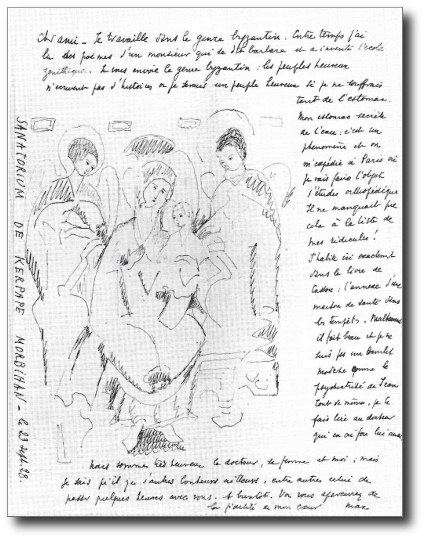 Cher ami - Je travaille dans le genre byzantin. Entre temps j'ai
lu des poèmes d'un monsieur qui se dit barbare et a inventé l'école
Je vous envoie le genre byzantin : les peuples heureux
n'ont pas d'histoires or je serais un peuple heureux si je ne souffrais
tant de l'estomac.
Mon estomac secrète
de l'eau : c'est un
phénomène et on
m'expédie à Paris où
je vais faire l'objet
d'études orthopédiques
Il ne manquait que
cela à la liste de
mes ridicules !
J'habite ici exactement
dans le livre de
: l'anneau d'une
maison de santé dans
les tempêts. Malheureus
il fait beau et je ne
suis pas un Hamlet
modèle comme le
psychiatrisé de Jean
tout de même, je le
fais lire au docteur
qui en
nous sommes très heureux le docteur, sa femme et moi ; mais
je sais qu'il y a d'autres bonheurs ailleurs, entre autres celui de
passer quelques heures avec vous. A bientôt. Vous vous apercevrez de
la fidélité de mon cœur Max
SANATORIUM DE KERPAPE MORBIHAN - le 23 sept. 28.